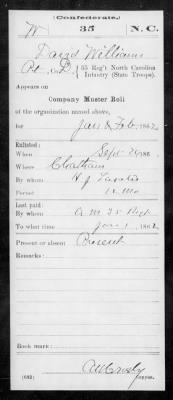 (Confederate.)
W 35 N.C.
David Williams
Co. D, 35 Reg't North Carolina
Infantry (State Troops).
Appears on
Company Muster Roll
of the organization named above,
for Jan & Feb, 1862
Enlisted:
When Sept 186
Where Chatham
By whom
Period 12 Mo
Last paid:
By whom
To what time Jan 1, 1862
Present or absent Present
Remarks:
Book mark:
(642) Copyist.